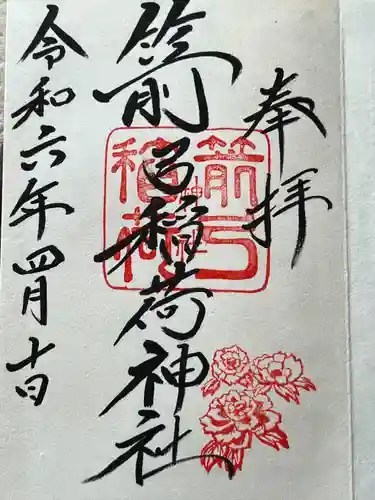 奉拝
箭弓稲荷神社
箭弓稲荷神社
令和六年四月十日